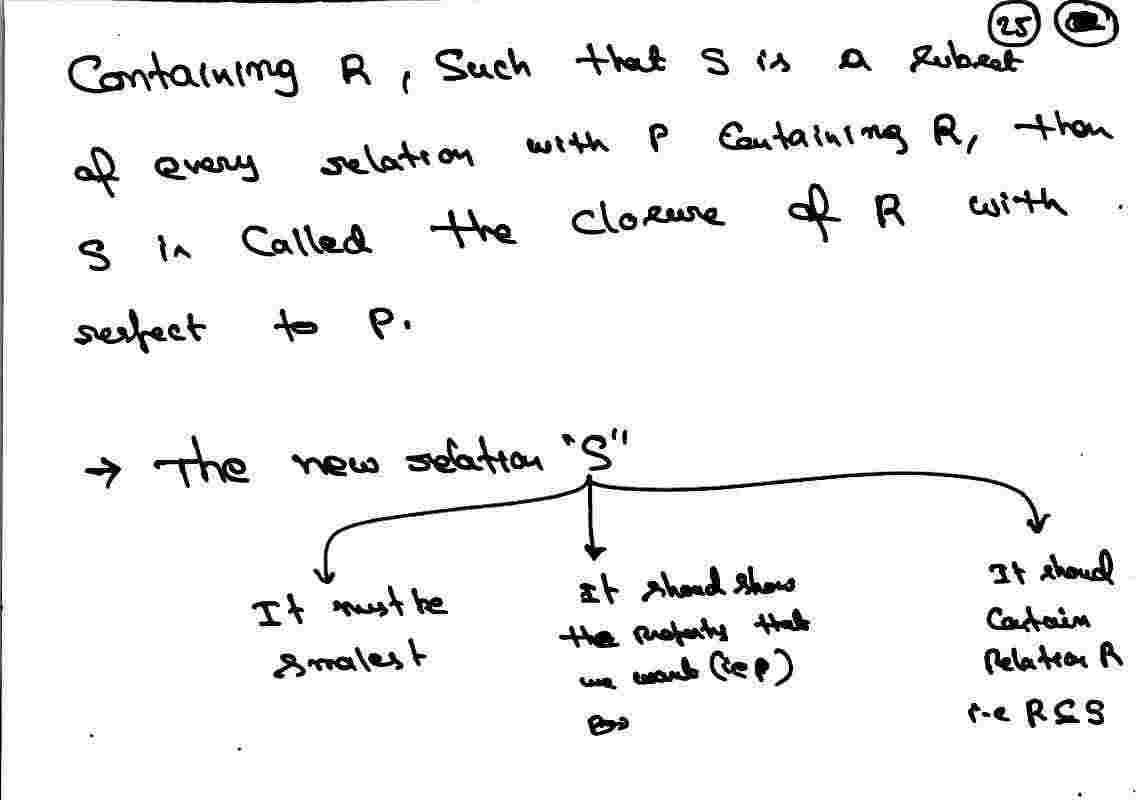 25
Containing R, Such that S is a subset
of every relation with P Containing R, then
S is Called the Closure of R with
respect to P.
→ The new relation "S"
It must be
smalest
It shoud show
the property that
we want (ie p)
It shoud
Contain
Relation R
i-e R ⊆ S